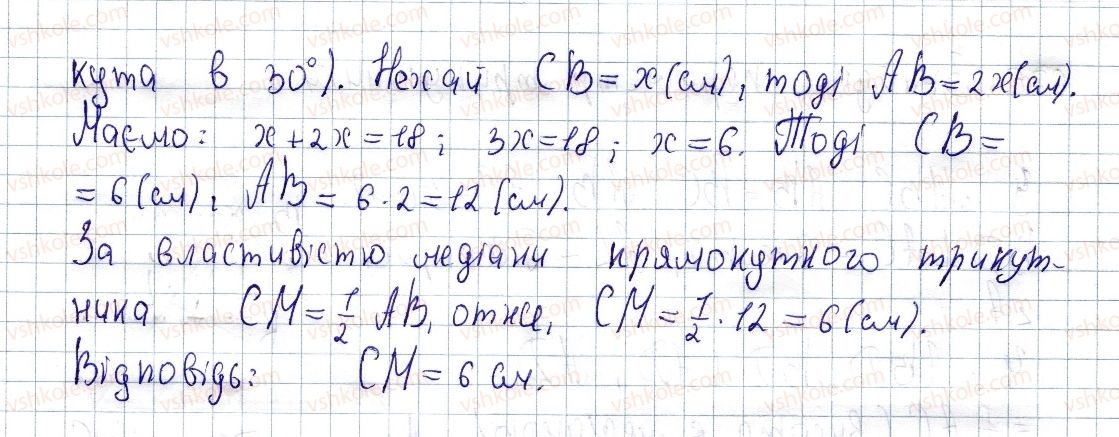 кута в 30°). Нехай CB = x (см), тоді AB = 2x (см).
Маємо: x + 2x = 18; 3x = 18; x = 6. Тоді CB =
= 6 (см), AB = 6 · 2 = 12 (см).
За властивістю медіани прямокутного трикут-
ника CM = 1/2 AB, отже, CM = 1/2 · 12 = 6 (см).
Відповідь: CM = 6 см.